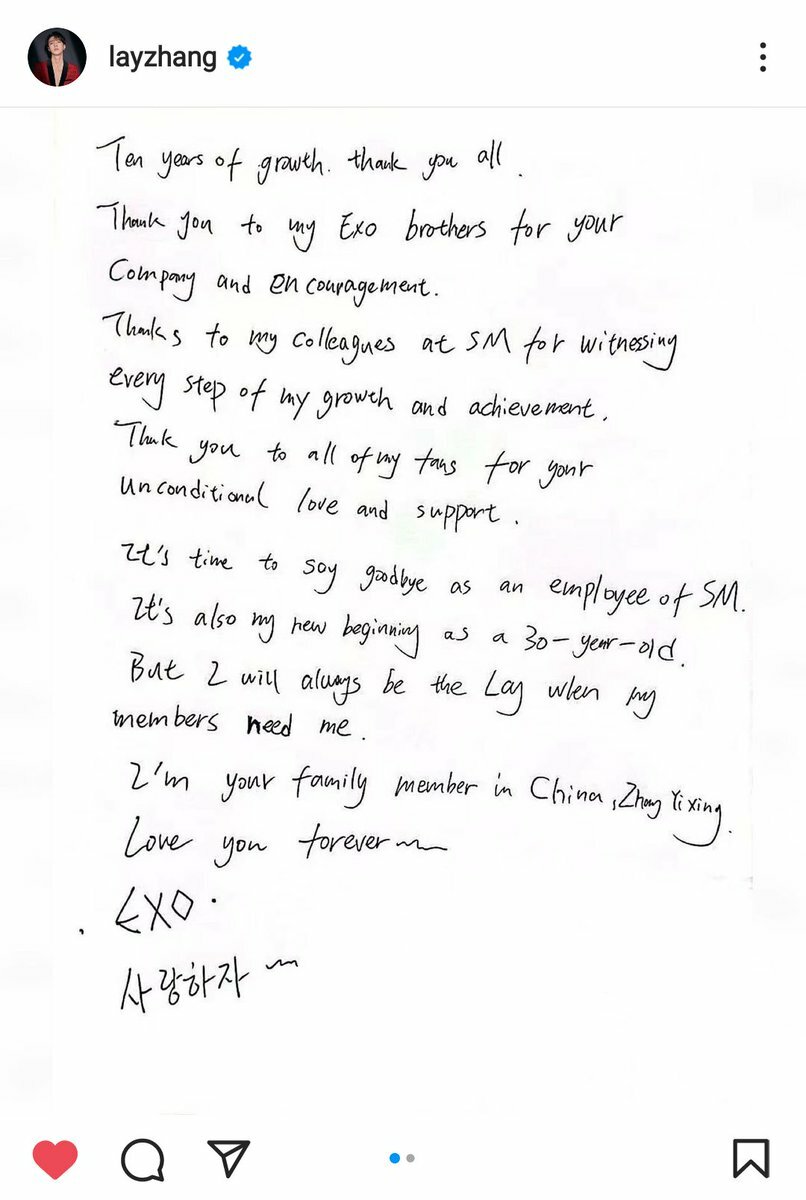 layzhang
Ten years of growth. thank you all.
Thank you to my Exo brothers for your
Company and encouragement.
Thanks to my colleagues at SM for witnessing
every step of my growth and achievement.
Thank you to all of my fans for your
unconditional love and support.
It's time to say goodbye as an employee of SM.
It's also my new beginning as a 30-year-old.
But I will always be the Lay when my
members need me.
I'm your family member in China, Zhang Yixing.
Love you forever~
EXO.
사랑하자~